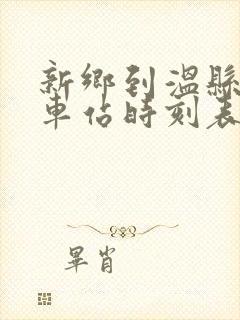 新鄉到溫縣
車站時刻表
畢肖